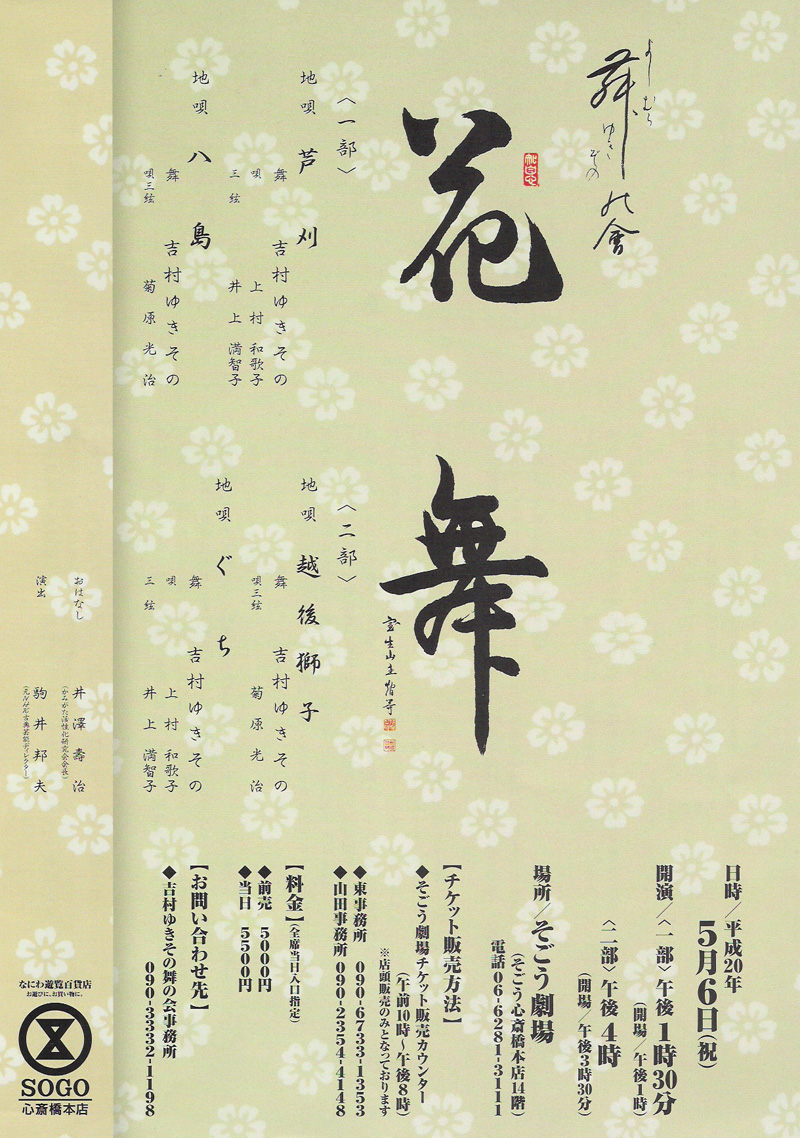 よしむら
舞ゆきぞの
の會
花舞
室生山主智等
〈一部〉
地唄 芦刈
舞 吉村ゆきその
唄 上村 和歌子
三絃 井上 満智子
地唄 八島
舞 吉村ゆきその
唄三絃 菊原 光治
〈二部〉
地唄 越後獅子
舞 吉村ゆきその
唄三絃 菊原 光治
地唄 ぐち
舞 吉村ゆきその
唄 上村 和歌子
三絃 井上 満智子
おはなし 井澤 壽治
(かみがた活性化研究会会長)
演出 駒井 邦夫
(元NHK古典芸能ディレクター)
日時／平成20年
5月6日(祝)
開演／〈一部〉午後1時30分
(開場／午後1時)
〈二部〉午後4時
(開場／午後3時30分)
場所／そごう劇場
(そごう心斎橋本店14階)
電話06-6281-3111
【チケット販売方法】
◆そごう劇場チケット販売カウンター
(午前10時～午後8時)
※店頭販売のみとなっております
◆東事務所 090-6733-1353
◆山田事務所 090-2354-4148
【料金】(全席当日入口指定)
◆前売 5000円
◆当日 5500円
【お問い合わせ先】
◆吉村ゆきその舞の会事務所
090-3332-1198
なにわ遊覧百貨店
お遊びに、お買い物に。
SOGO
心斎橋本店